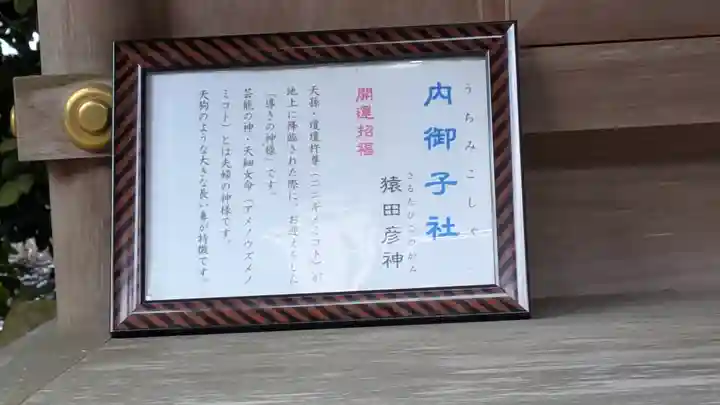 内御子社
うちみこしゃ
猿田彦神
さるたひこのかみ
開運招福
天孫・瓊瓊杵尊（ニニギノミコト）が
地上に降臨された際に、お迎えをした
「導きの神様」です。
芸能の神・天細女命（アメノウズメノ
ミコト）とは夫婦の神様です。
天狗のような大きな長い鼻が特徴です。